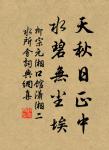 天秋日正中
水碧無塵埃
柳宗元湘口館瀟湘二
水所會詞典網集